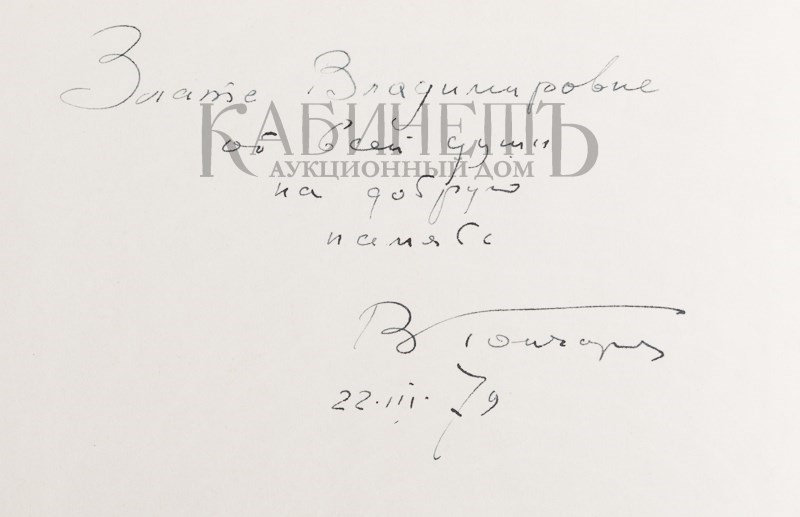 Злате Владимировне
КАБИНЕТЪ
от всей души
АУКЦИОННЫЙ ДОМ
на добрую
память
В Гончаров
22.III.79